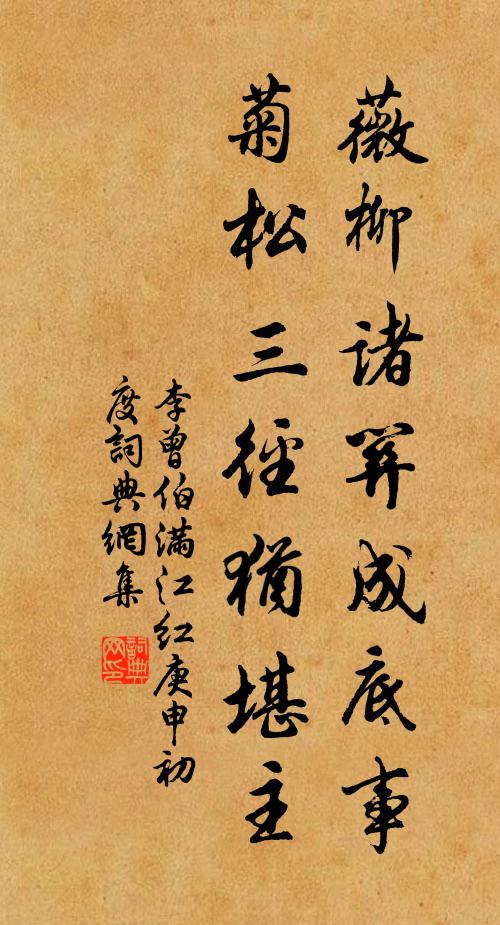 薇柳諸關成底事
菊松三徑猶堪主
李曾伯滿江紅庚申初
度詞典網集
詞典网印